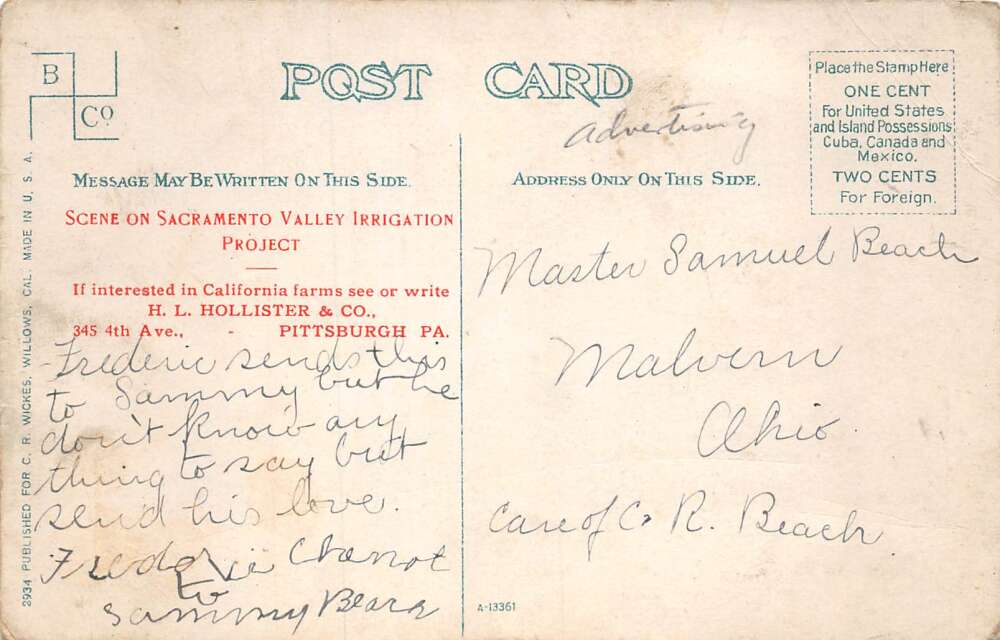 B
Co
POST CARD
Place the Stamp Here
ONE CENT
For United States
and Island Possessions,
Cuba, Canada and
Mexico.
TWO CENTS
For Foreign.
advertising
MESSAGE MAY BE WRITTEN ON THIS SIDE.
ADDRESS ONLY ON THIS SIDE.
SCENE ON SACRAMENTO VALLEY IRRIGATION
PROJECT
If interested in California farms see or write
H. L. HOLLISTER & CO.,
345 4th Ave., - PITTSBURGH PA.
Frederic sends this
to Sammy but he
don't know any
thing to say but
send his love.
Frederic
to
Sammy
Master Samuel Beach
Malvern
Ohio.
Care of C. R. Beach
2934 PUBLISHED FOR C. R. WICKES, WILLOWS, CAL. MADE IN U. S. A.
A-13361